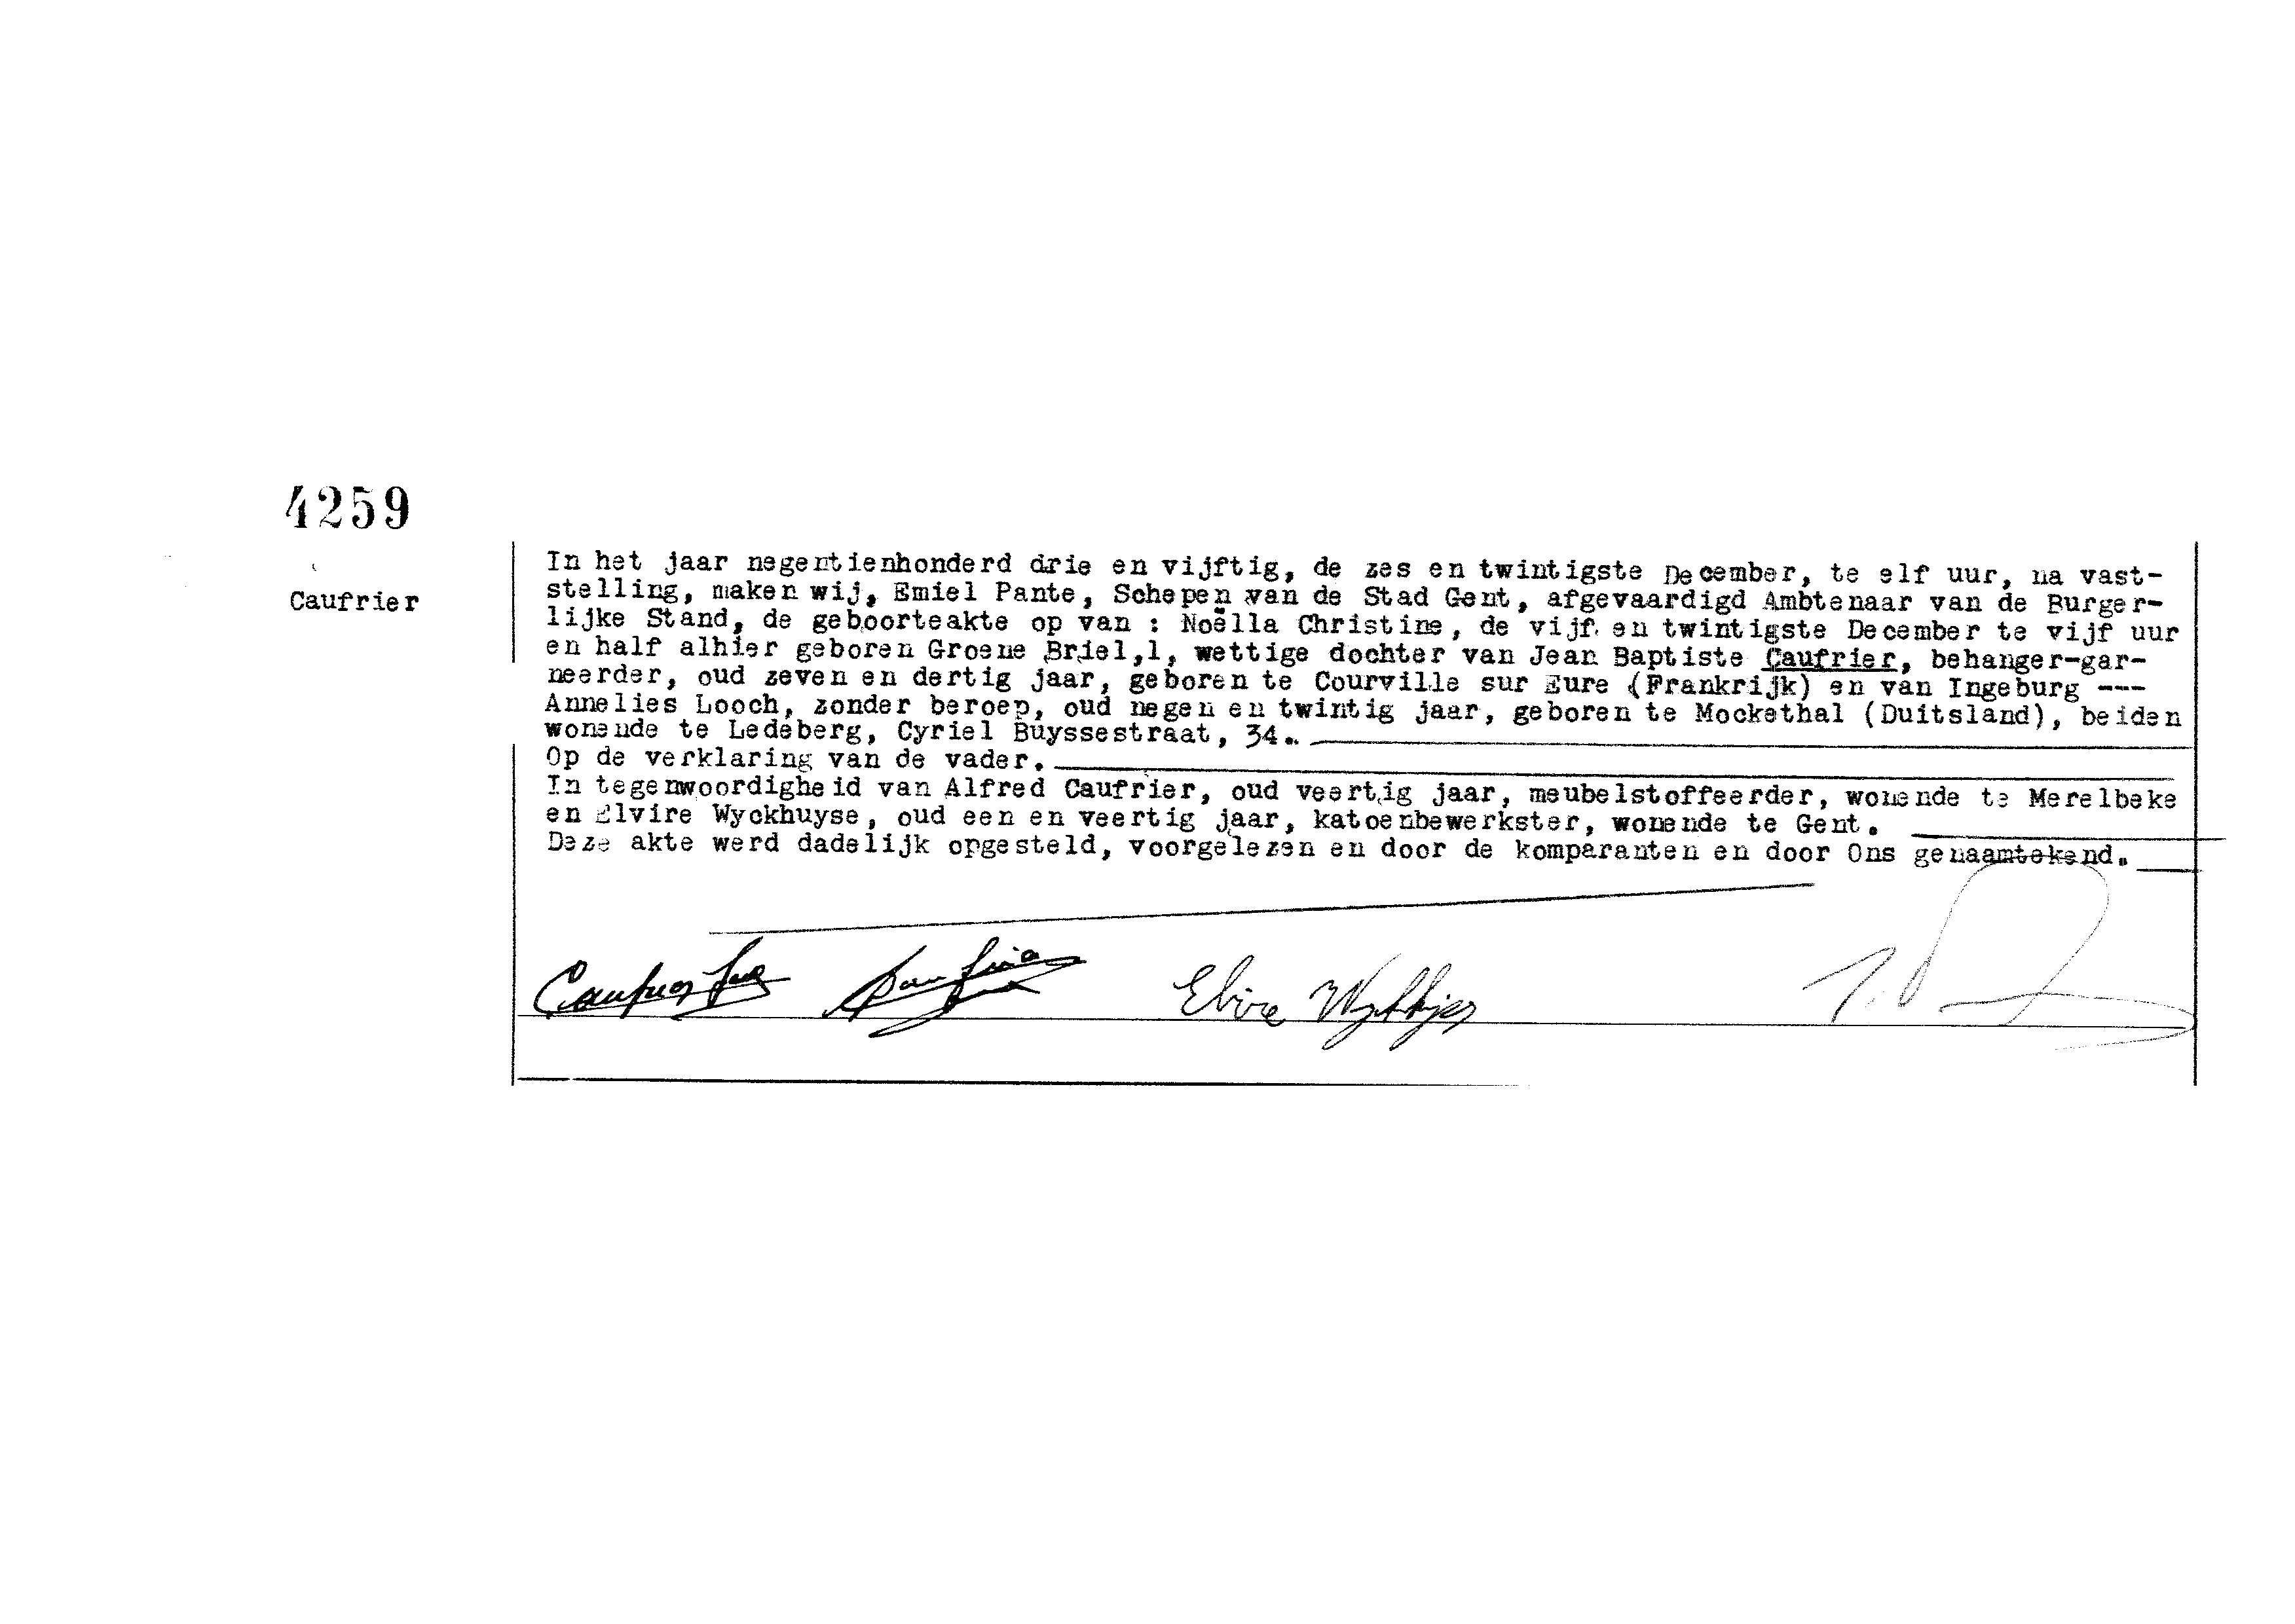 4259
Caufrier
In het jaar negentienhonderd drie en vijftig, de zes en twintigste December, te elf uur, na vast-
stelling, maken wij, Emiel Pante, Schepen van de Stad Gent, afgevaardigd Ambtenaar van de Burger-
lijke Stand, de geboorteakte op van : Noëlla Christine, de vijf en twintigste December te vijf uur
en half alhier geboren Groene Briel,1, wettige dochter van Jean Baptiste Caufrier, behanger-gar-
neerder, oud zeven en dertig jaar, geboren te Courville sur Eure (Frankrijk) en van Ingeburg ---
Annelies Looch, zonder beroep, oud negen en twintig jaar, geboren te Mockethal (Duitsland), beiden
wonende te Ledeberg, Cyriel Buyssestraat, 34..
Op de verklaring van de vader.
In tegenwoordigheid van Alfred Caufrier, oud veertig jaar, meubelstoffeerder, wonende te Merelbeke
en Elvire Wyckhuyse, oud een en veertig jaar, katoenbewerkster, wonende te Gent.
Deze akte werd dadelijk opgesteld, voorgelezen en door de komparanten en door Ons genaamtekend.
Elvire